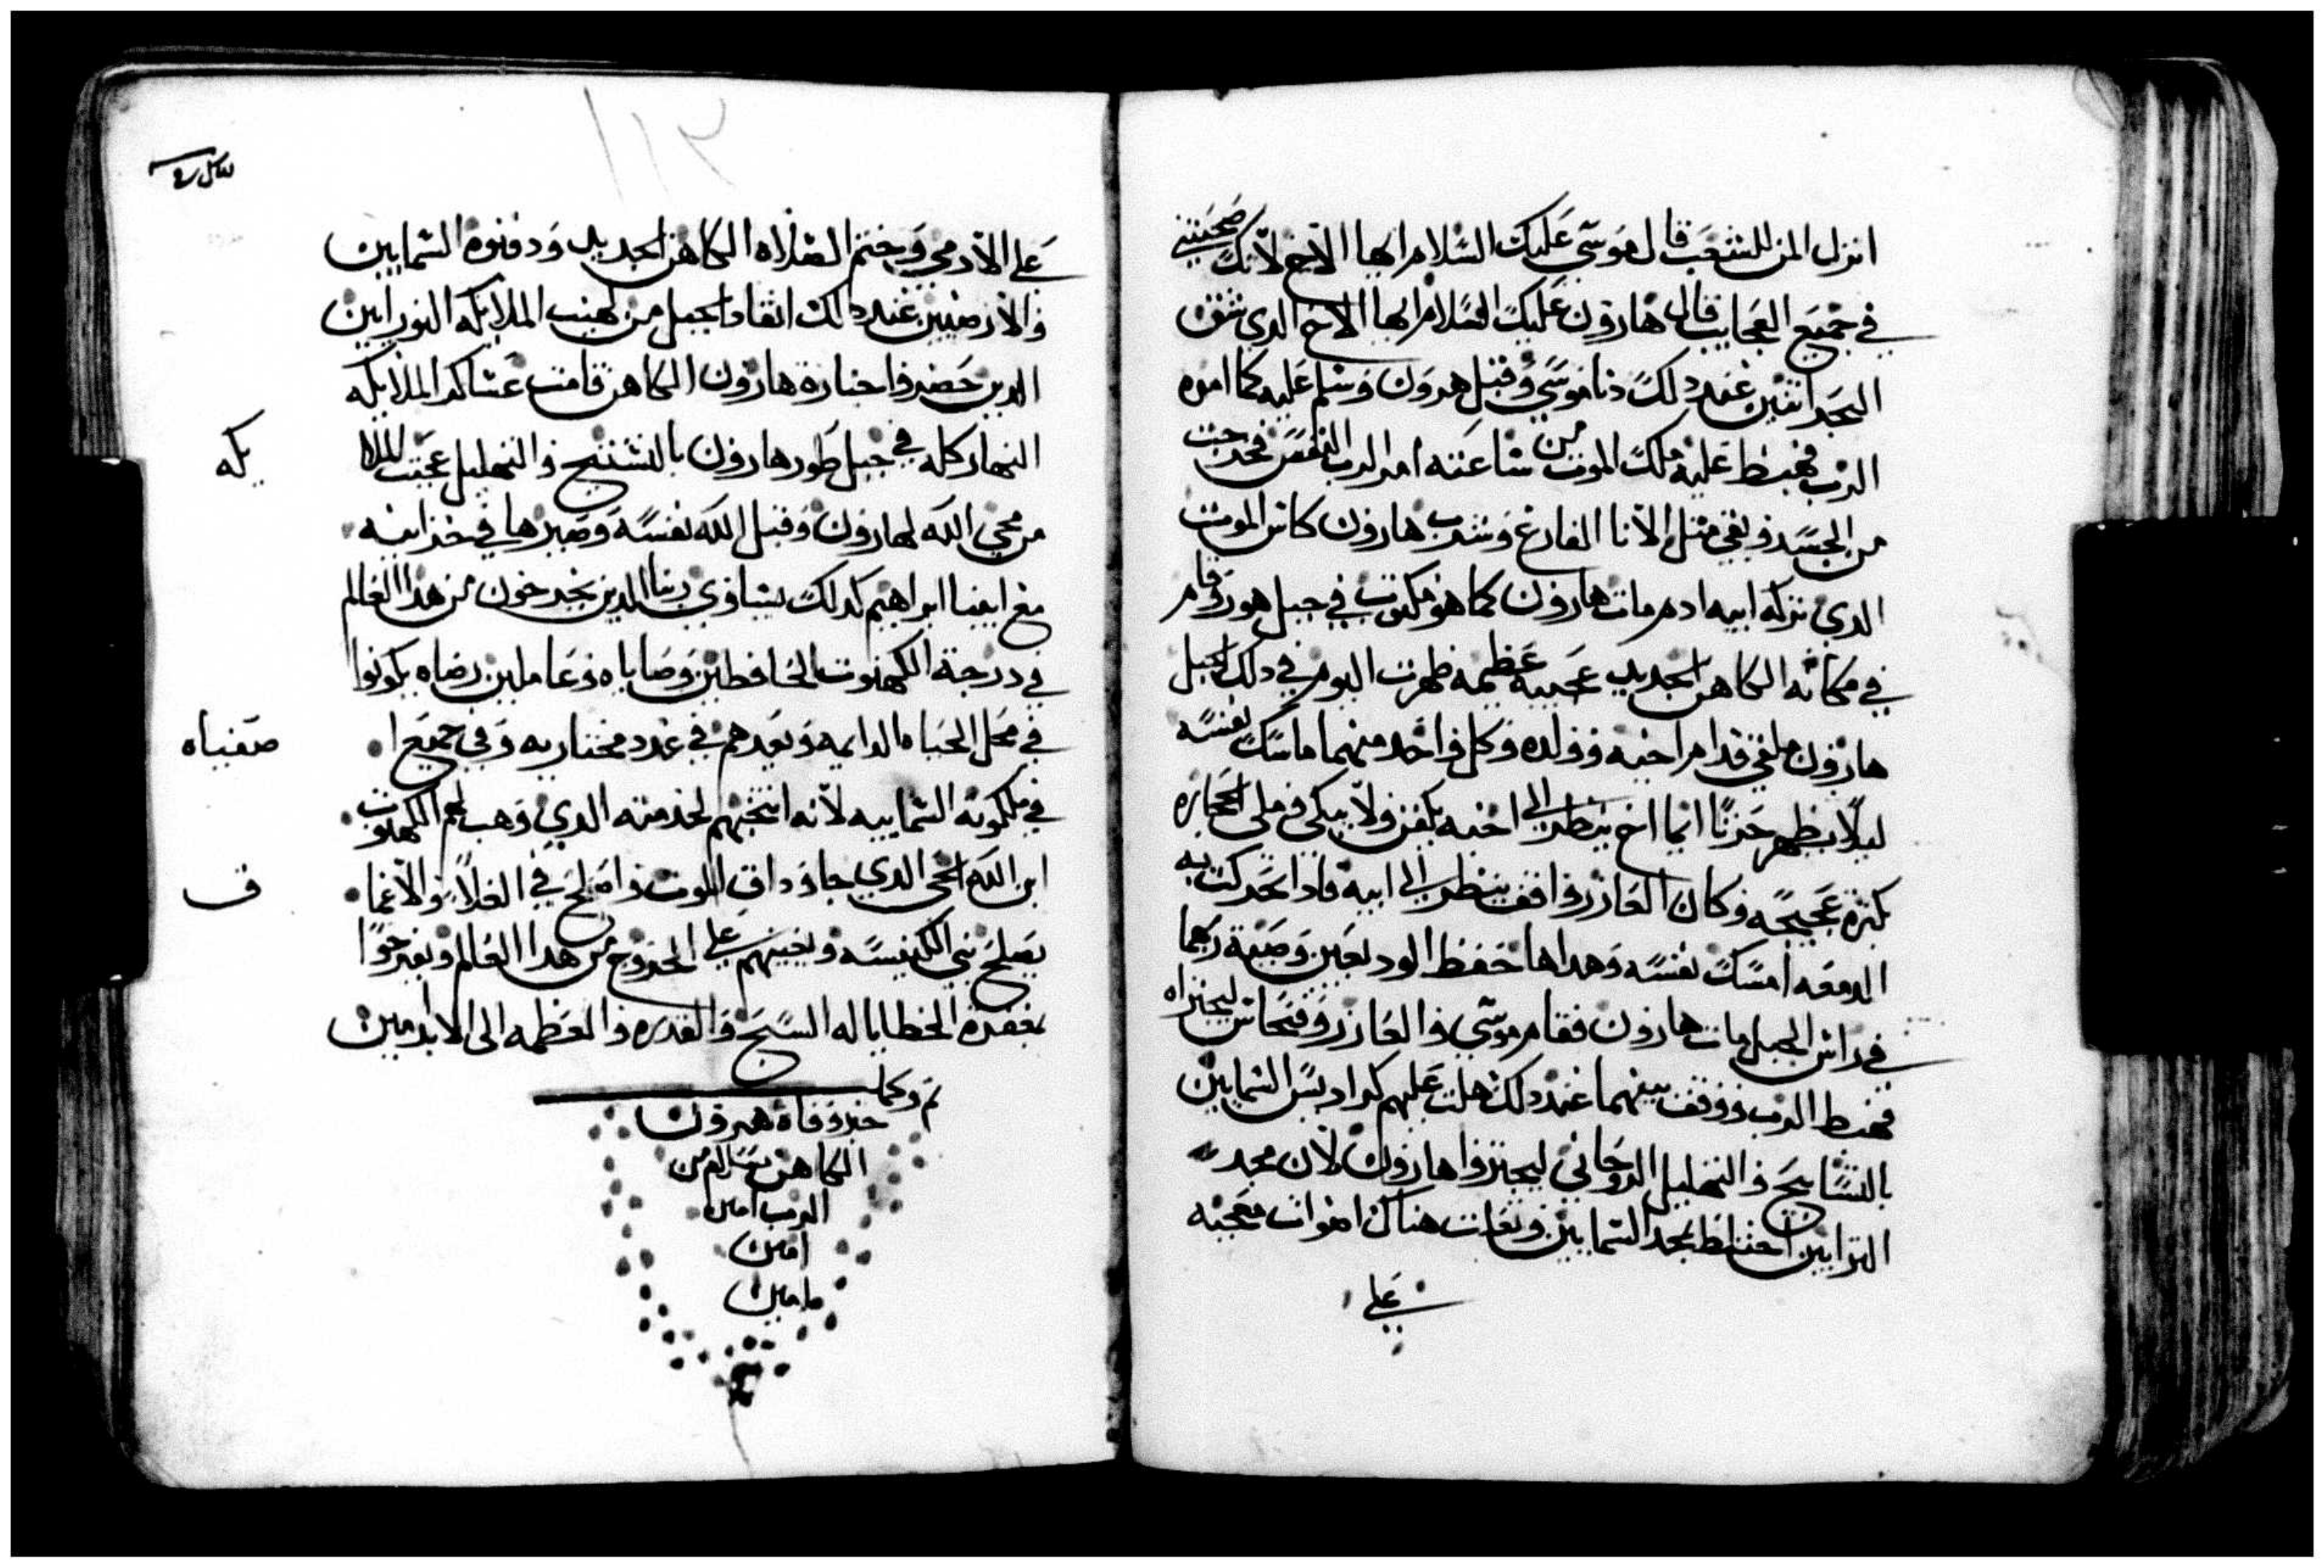 انزل المن للشعب قال موسي عليك السلام ايها الاخ لانك صحبتني
في جميع العجايب قال هارون عليك السلام ايها الاخ الدي شق
البحر اتنين عند دلك دنا موسي وقبل هرون وسلم عليه كما امره
الرب فهبط عليه ملك الموت من ساعته امر الرب النفس فخرجت
من الجسد وبقي متل الانا الفارغ وشرب هارون كاس الموت
الدي تركه ابيه ادم مات هارون كما هو مكتوب في جبل هور وقام
في مكانه الكاهن الجديد عجيبه عظيمه ظهرت اليوم في دلك الجبل
هارون ملقي قدام اخيه وولده وكل واحد منهما ماسك نفسه
ليلا يظهر حزنا انما اخ ينظر الي اخيه يكفن ولا يبكي في ملي الحجاره
بكتره عجيجه وكان العازر واقف ينظر الي ابيه فادا تحركت به
الدمعه امسك نفسه وهداها حفظ الوديعين وصية ربهما
في راس الجبل مات هارون فقام موسي والعازر وفنحاس ليجنزاه
فهبط الرب ووقف بينهما عند دلك هلت عليهم كراديس السمايين
بالتسابيح والتهليل الروحاني ليجنزوا هارون لان مجد
الترابين اختلط بمجد السمايين وتغات هناك اصوات معجبه
علي
علي الادمي وختم الصلاه الكاهن الجديد ودفنوه السمايين
والارضيين عند دلك اتقاد الجبل من لهيب الملايكه النورانين
الدين حضروا جنازة هارون الكاهن قامت عساكر الملايكه
النهار كله في جبل طور هارون بالتسبيح والتهليل عجبت الملا
يكه
من مجي الله لهارون وقبل الله نفسه وصيرها في خزاينه
مع ابينا ابراهيم كدلك يساوي ربنا الدين يخرجون من هدا العالم
في درجة الكهنوت الحافظين وصاياه وعاملين رضاه يكونوا
في محل الحياه الدايمه ويعدهم في عدد مختاريه وفي جميع ا
صفياه
في ملكوته السماييه لانه انتخبهم لخدمته الدي وهب لهم الكهنوت
ابن الله الحي الدي جا وداق الموت واصلح في العلا والاعما
ق
يصلح بني الكنيسه ويعينهم علي الخروج من هدا العالم ويفرحوا
بمغفرة الخطايا له السبح والقدره والعظمه الي الابد امين
تم وكمل
خبر وفاة هرون
الكاهن بسلام من
الرب امين
امين
امين